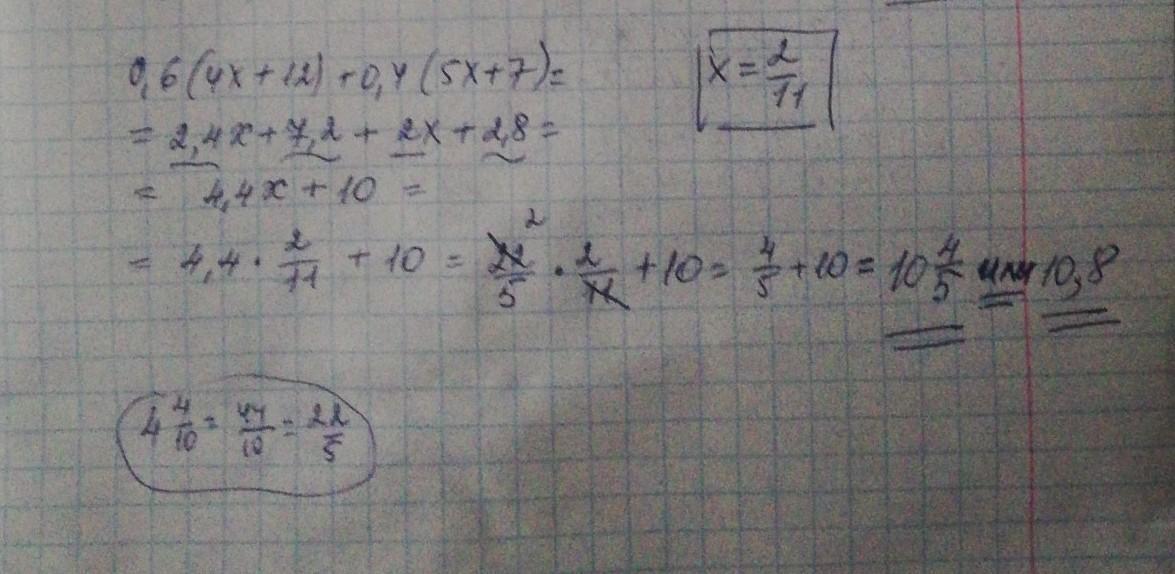 0,6(4x+12)+0,4(5x+7)=
x = 2/11
= 2,4x + 7,2 + 2x + 2,8 =
= 4,4x + 10 =
= 4,4 · 2/11 + 10 = 22/5 2 · 2/11 + 10 = 4/5 + 10 = 10 4/5 или 10,8
4 4/10 = 44/10 = 22/5